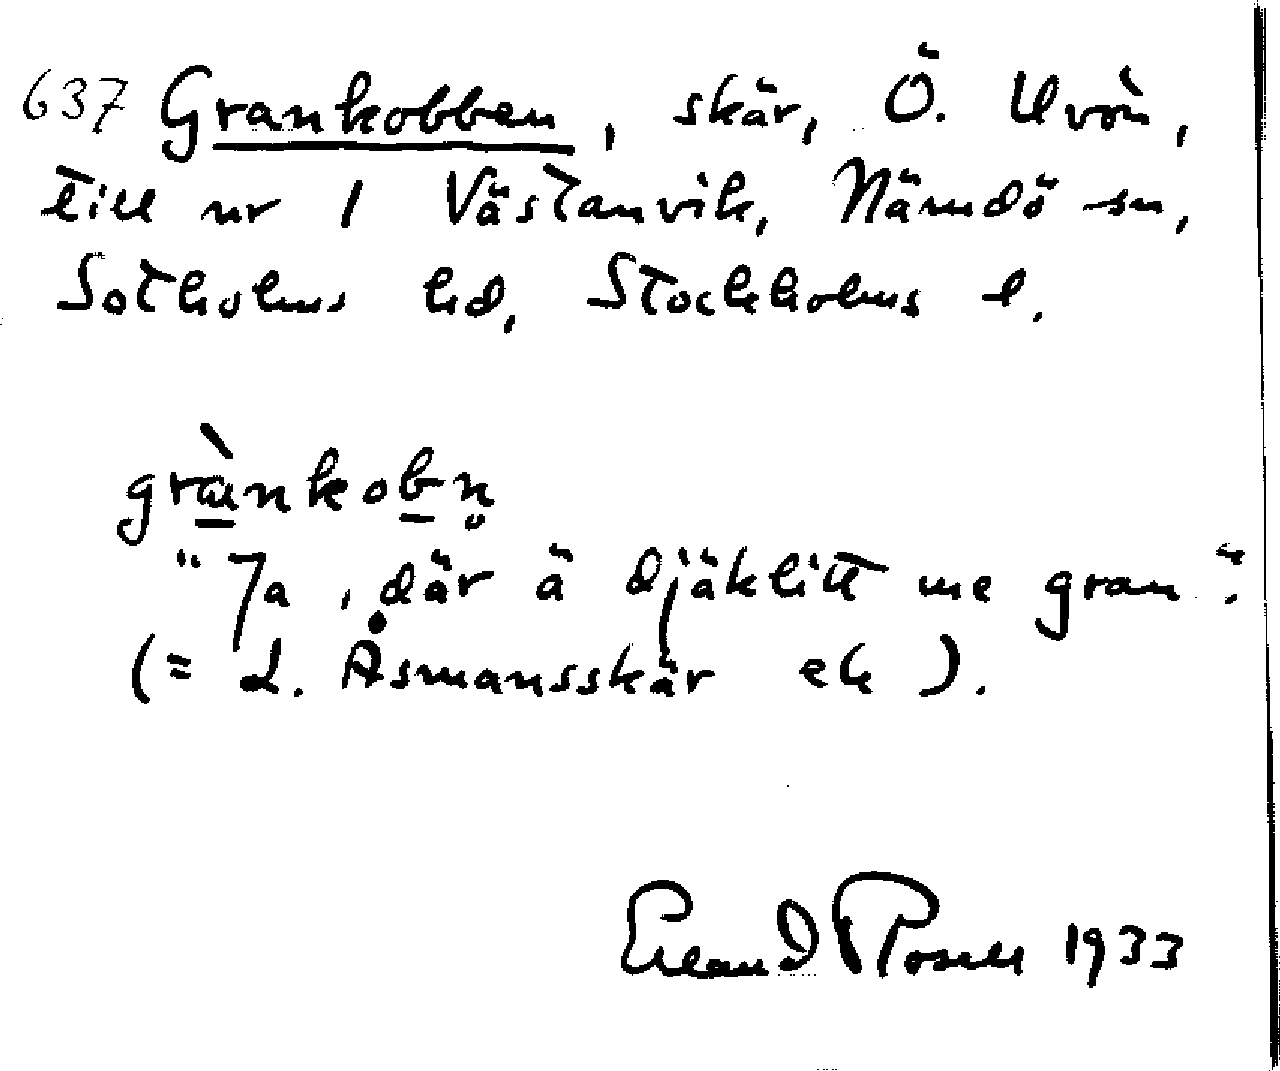 637 Grankobben, skär, Ö. Uvön,
till nr 1 Västanvik, Nämdö sn,
Sotholms hd, Stockholms l.
grànkobn̥
"Ja, där ä djäklitt me gran".
(= L. Åsmansskär ek).
Erland Rosell 1933